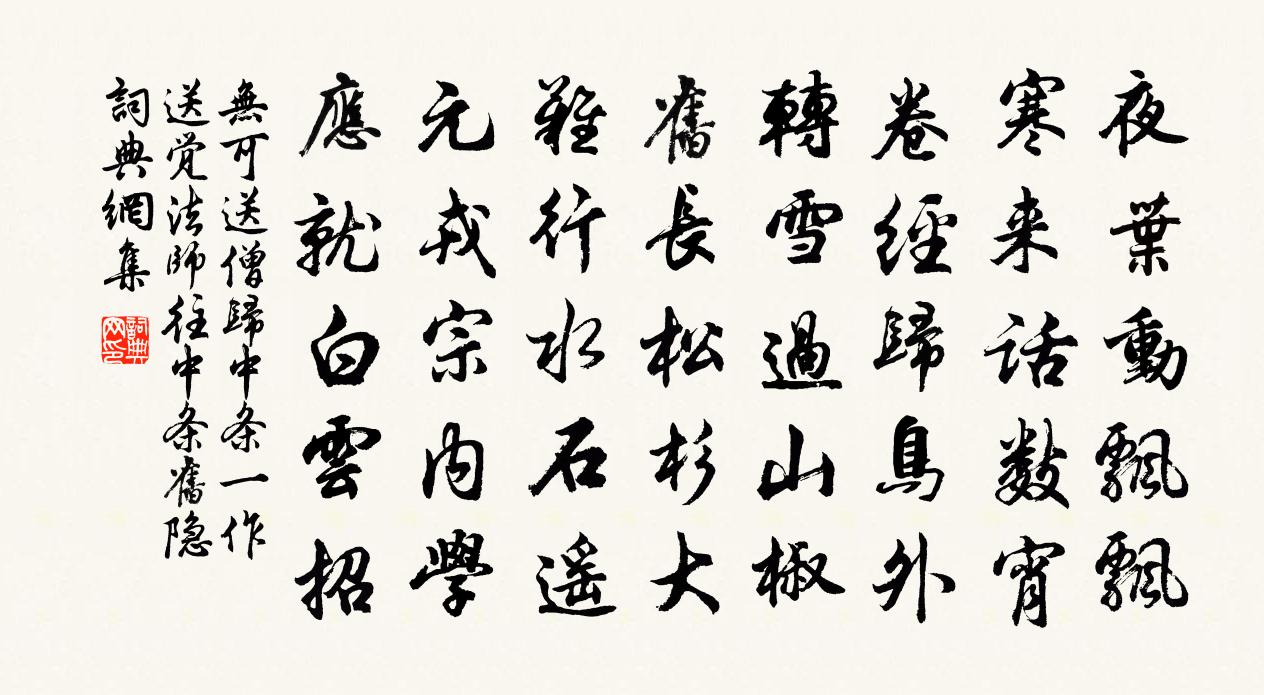 夜葉動飄飄
寒来話數宵
卷經歸鳥外
轉雪過山椒
舊長松杉大
難行水石遥
元戎宗内學
應就白雲招
無可送僧歸中条一作
送覚法師往中条舊隐
詞典網集
詞典网印